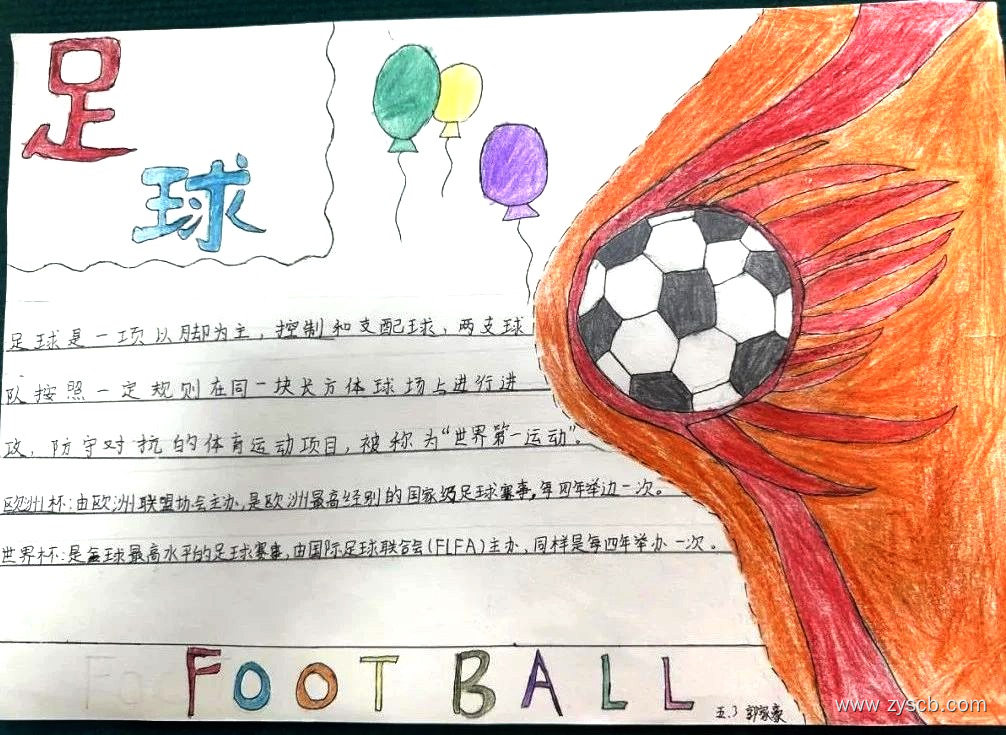 足
球
足球是一项以脚为主，控制和支配球，两支球
队按照一定规则在同一块长方体球场上进行进
攻、防守对抗的体育运动项目，被称为“世界第一运动”。
欧洲杯：由欧洲联盟协会主办，是欧洲最高级别的国家级足球赛事，每四年举边一次。
世界杯：是全球最高水平的足球赛事，由国际足球联合会(FLFA)主办，同样是每四年举办一次。
FOOTBALL
五.3 郭家豪
www.zyscb.com